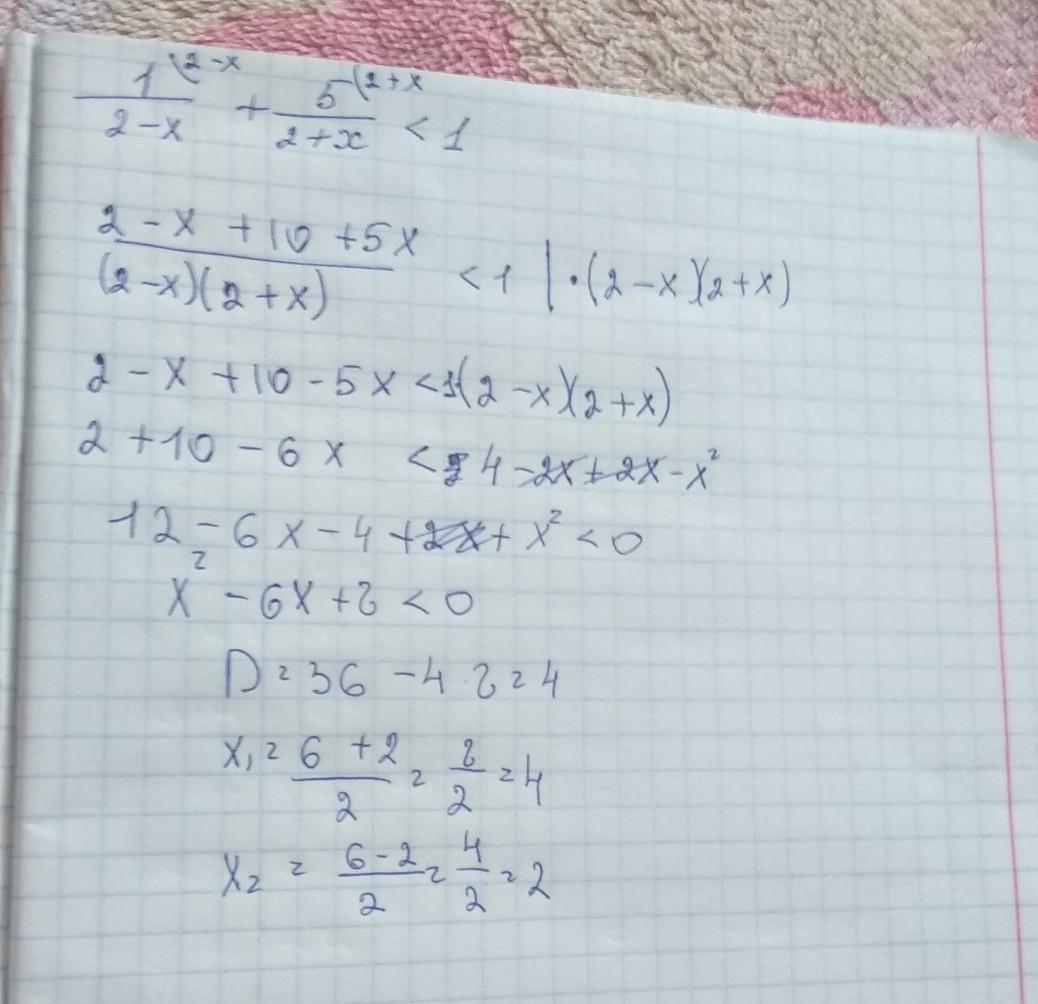 1\2-x/2-x + 5(2+x/2+x < 1
2-x+10+5x/(2-x)(2+x) < 1 | ·(2-x)(2+x)
2-x+10-5x<1(2-x)(2+x)
2+10-6x < 4-2x+2x-x²
12-6x-4+2x+x²<0
x²-6x+8<0
D=36-4·8=4
x₁=6+2/2=8/2=4
x₂=6-2/2=4/2=2